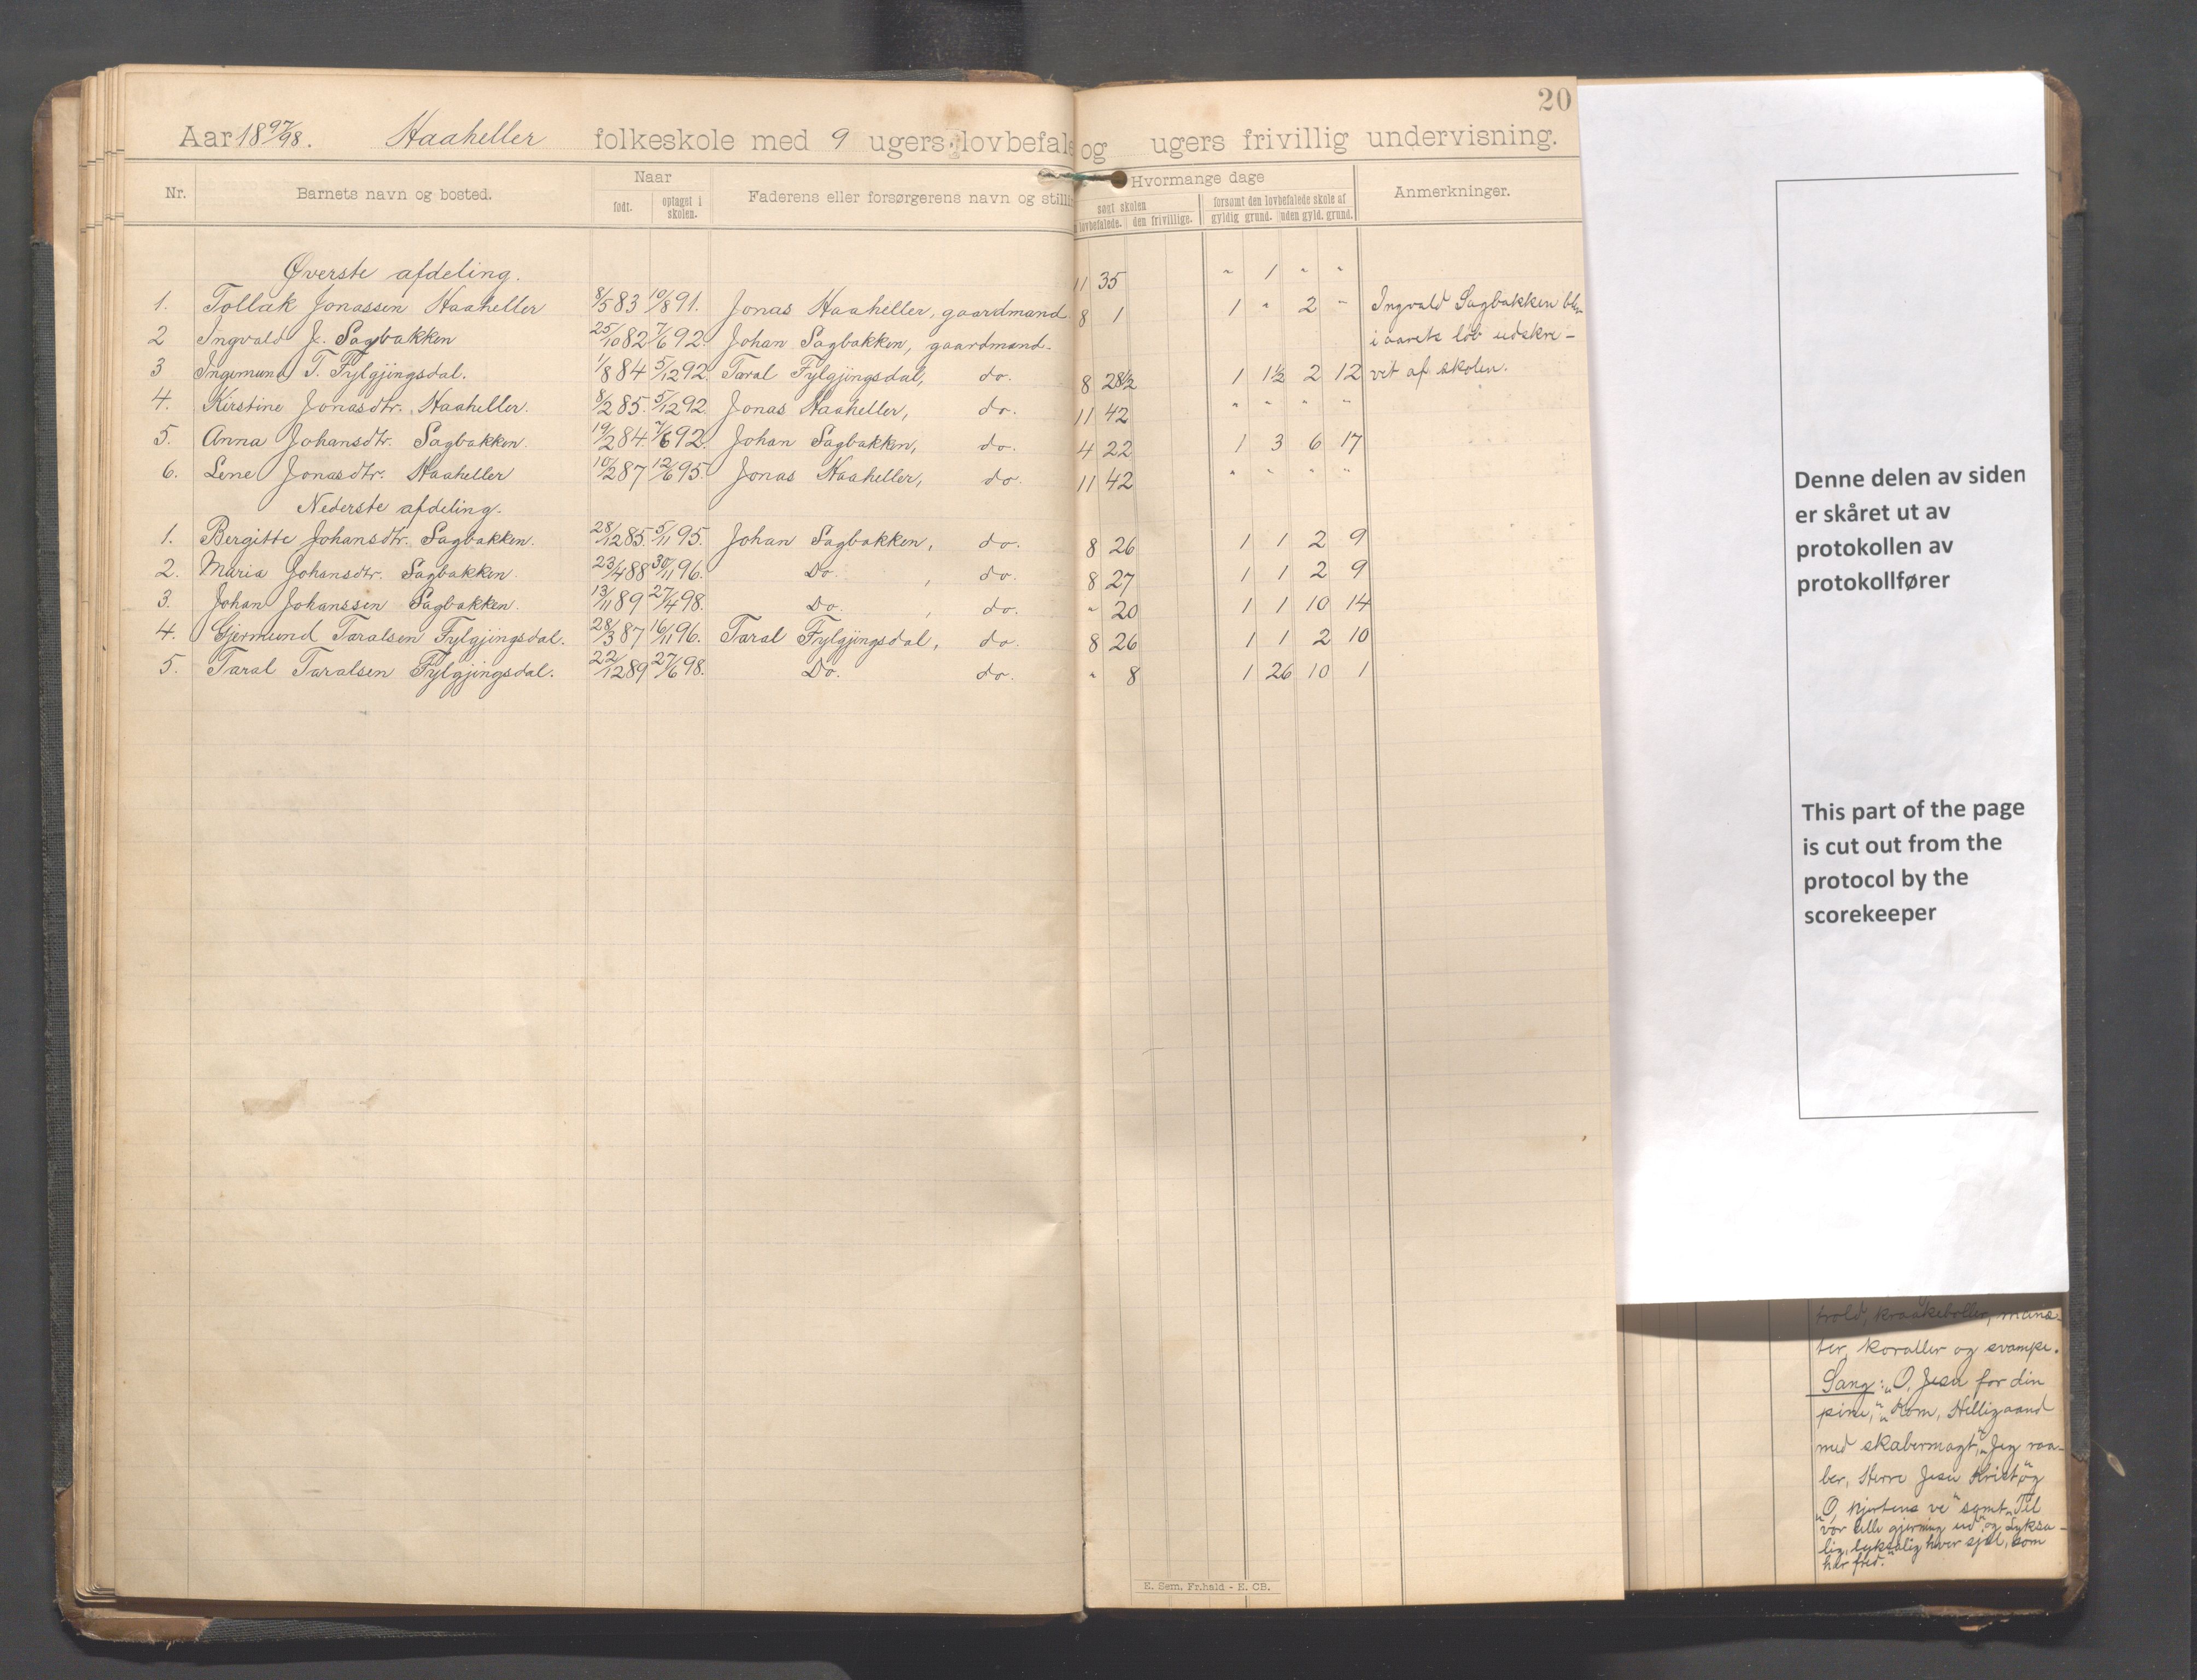 20
Aar 1897/98. Haaheller folkeskole med 9 ugers lovbefale og ugers frivillig undervisning.
Nr. Barnets navn og bosted. Naar Faderens eller forsørgerens navn og stilli Hvormange dage Anmerkninger.
født. optaget i skolen. søgt skolen forsømt den lovbefalede skole af
lovbefalede. den frivillige. gyldig grund. uden gyld. grund.
Øverste afdeling.
1. Tollak Jonassen Haaheller 8/5 83 10/8 91. Jonas Haaheller, gaardmand 11 35 " 1 " "
2 Ingvald J. Sagbakken 25/10 82 7/6 92. Johan Sagbakken, gaardmand. 8 1 1 " 2 " Ingvald Sagbakken blev
i aarets løb udskre-
3 Ingemund T. Fylgjingsdal. 1/8 84 5/12 92. Taral Fylgjingsdal, do. 8 28½ 1 1½ 2 12 vet af skolen.
4. Kirstine Jonasdtr. Haaheller. 8/2 85. 5/12 92. Jonas Haaheller, do. 11 42 " " " "
5. Anna Johansdtr. Sagbakken. 19/2 84 7/6 92. Johan Sagbakken, do. 4 22 1 3 6 17
6. Lene Jonasdtr. Haaheller 10/2 87 12/6 95. Jonas Haaheller, do. 11 42 " " " "
Nederste afdeling.
1. Bergitte Johansdtr. Sagbakken. 28/12 85. 5/11 95. Johan Sagbakken, do. 8 26 1 1 2 9
2. Maria Johansdtr. Sagbakken. 23/4 88 30/11 96. Do. , do. 8 27 1 1 2 9
3. Johan Johanssen Sagbakken. 13/11 89 27/4 98. Do. , do. " 20 1 1 10 14
4. Gjermund Taralsen Fylgjingsdal. 28/3 87 16/11 96. Taral Fylgjingsdal, do. 8 26 1 1 2 10
5. Taral Taralsen Fylgjingsdal. 22/12 89 27/6 98. Do. do. " 8 1 26 10 1
E. Sem. Fr.hald - E. CB.
Denne delen av siden
er skåret ut av
protokollen av
protokollfører
This part of the page
is cut out from the
protocol by the
scorekeeper
trold, kraakeboller, manæ-
ter, koraller og svampe.
Sang: „O, Jesu for din
pine," „Kom, Helligaand
med skabermagt," „Jeg raa-
ber, Herre Jesu Krist" og
„O, hjertens ve" samt „Til
vor lille gjerning ud" og „Lyksa-
lig, lyksalig hver sjæl, som
har fred."